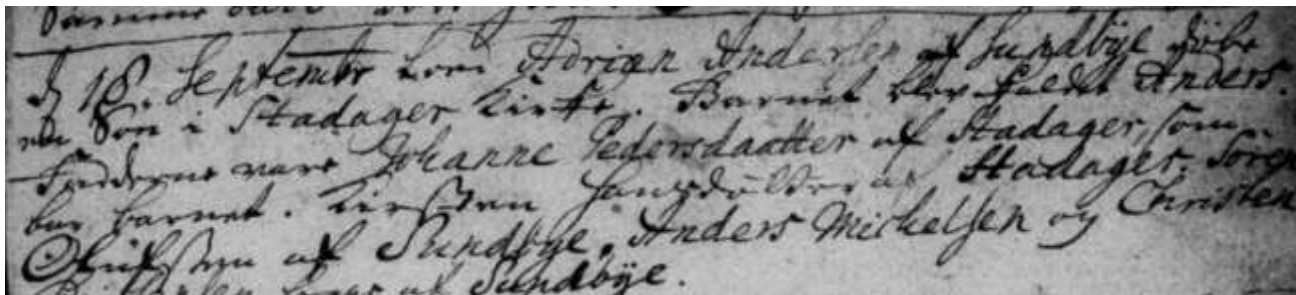 Samme
d 18. Septembr Adrian Andersen af Sundbÿe
en Søn i Stadager Kirke. Barnet blev kaldet Anders.
Fadderne vare Johanne Pedersdaatter af Stadager, som
bar barnet. Kirsten Hansdatter af Stadager. Søren
af Sundbÿe, Anders Mickelsen og Christen
af Sundbÿe.